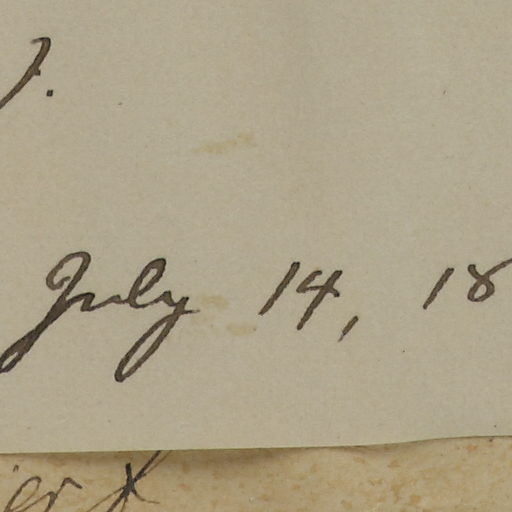 ).
July 14, 18